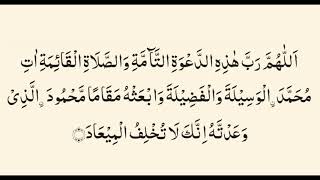 اَللّٰهُمَّ رَبَّ هٰذِهِ الدَّعْوَةِ التَّآمَّةِ وَالصَّلَاةِ الْقَائِمَةِ اٰتِ
مُحَمَّدَ ۨالْوَسِيْلَةَ وَالْفَضِيْلَةَ وَابْعَثْهُ مَقَامًا مَّحْمُودَ ۨالَّذِىْ
وَعَدْتَّهُ اِنَّكَ لَا تُخْلِفُ الْمِيْعَادَ